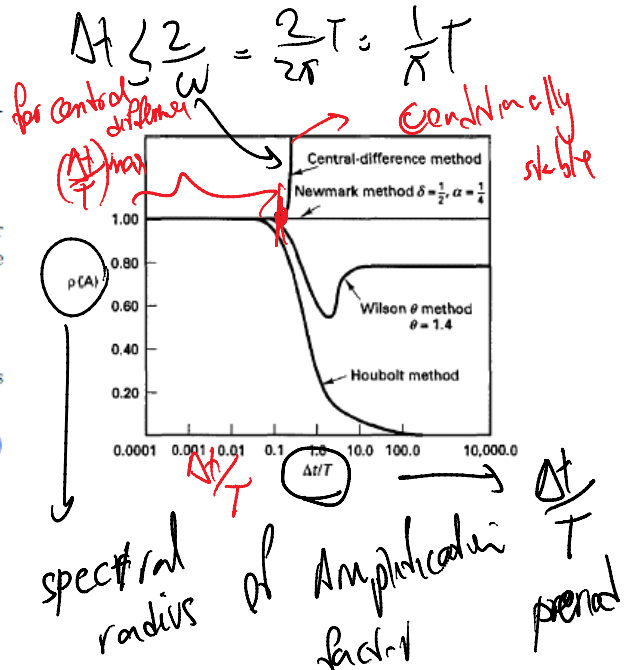 Δt ≤ 2/ω = 2/2π T = 1/π T
for central
difference
conditionally
stable
(Δt/T)max
Central-difference method
Newmark method δ = 1/2, α = 1/4
1.00
0.80
ρ(A)
0.60
0.40
0.20
Wilson θ method
θ = 1.4
Houbolt method
0.0001 0.001 0.01 0.1 1.0 10.0 100.0 10,000.0
Δt/T
Δt/T
Δt/T
period
spectral
radius of Amplification
factor